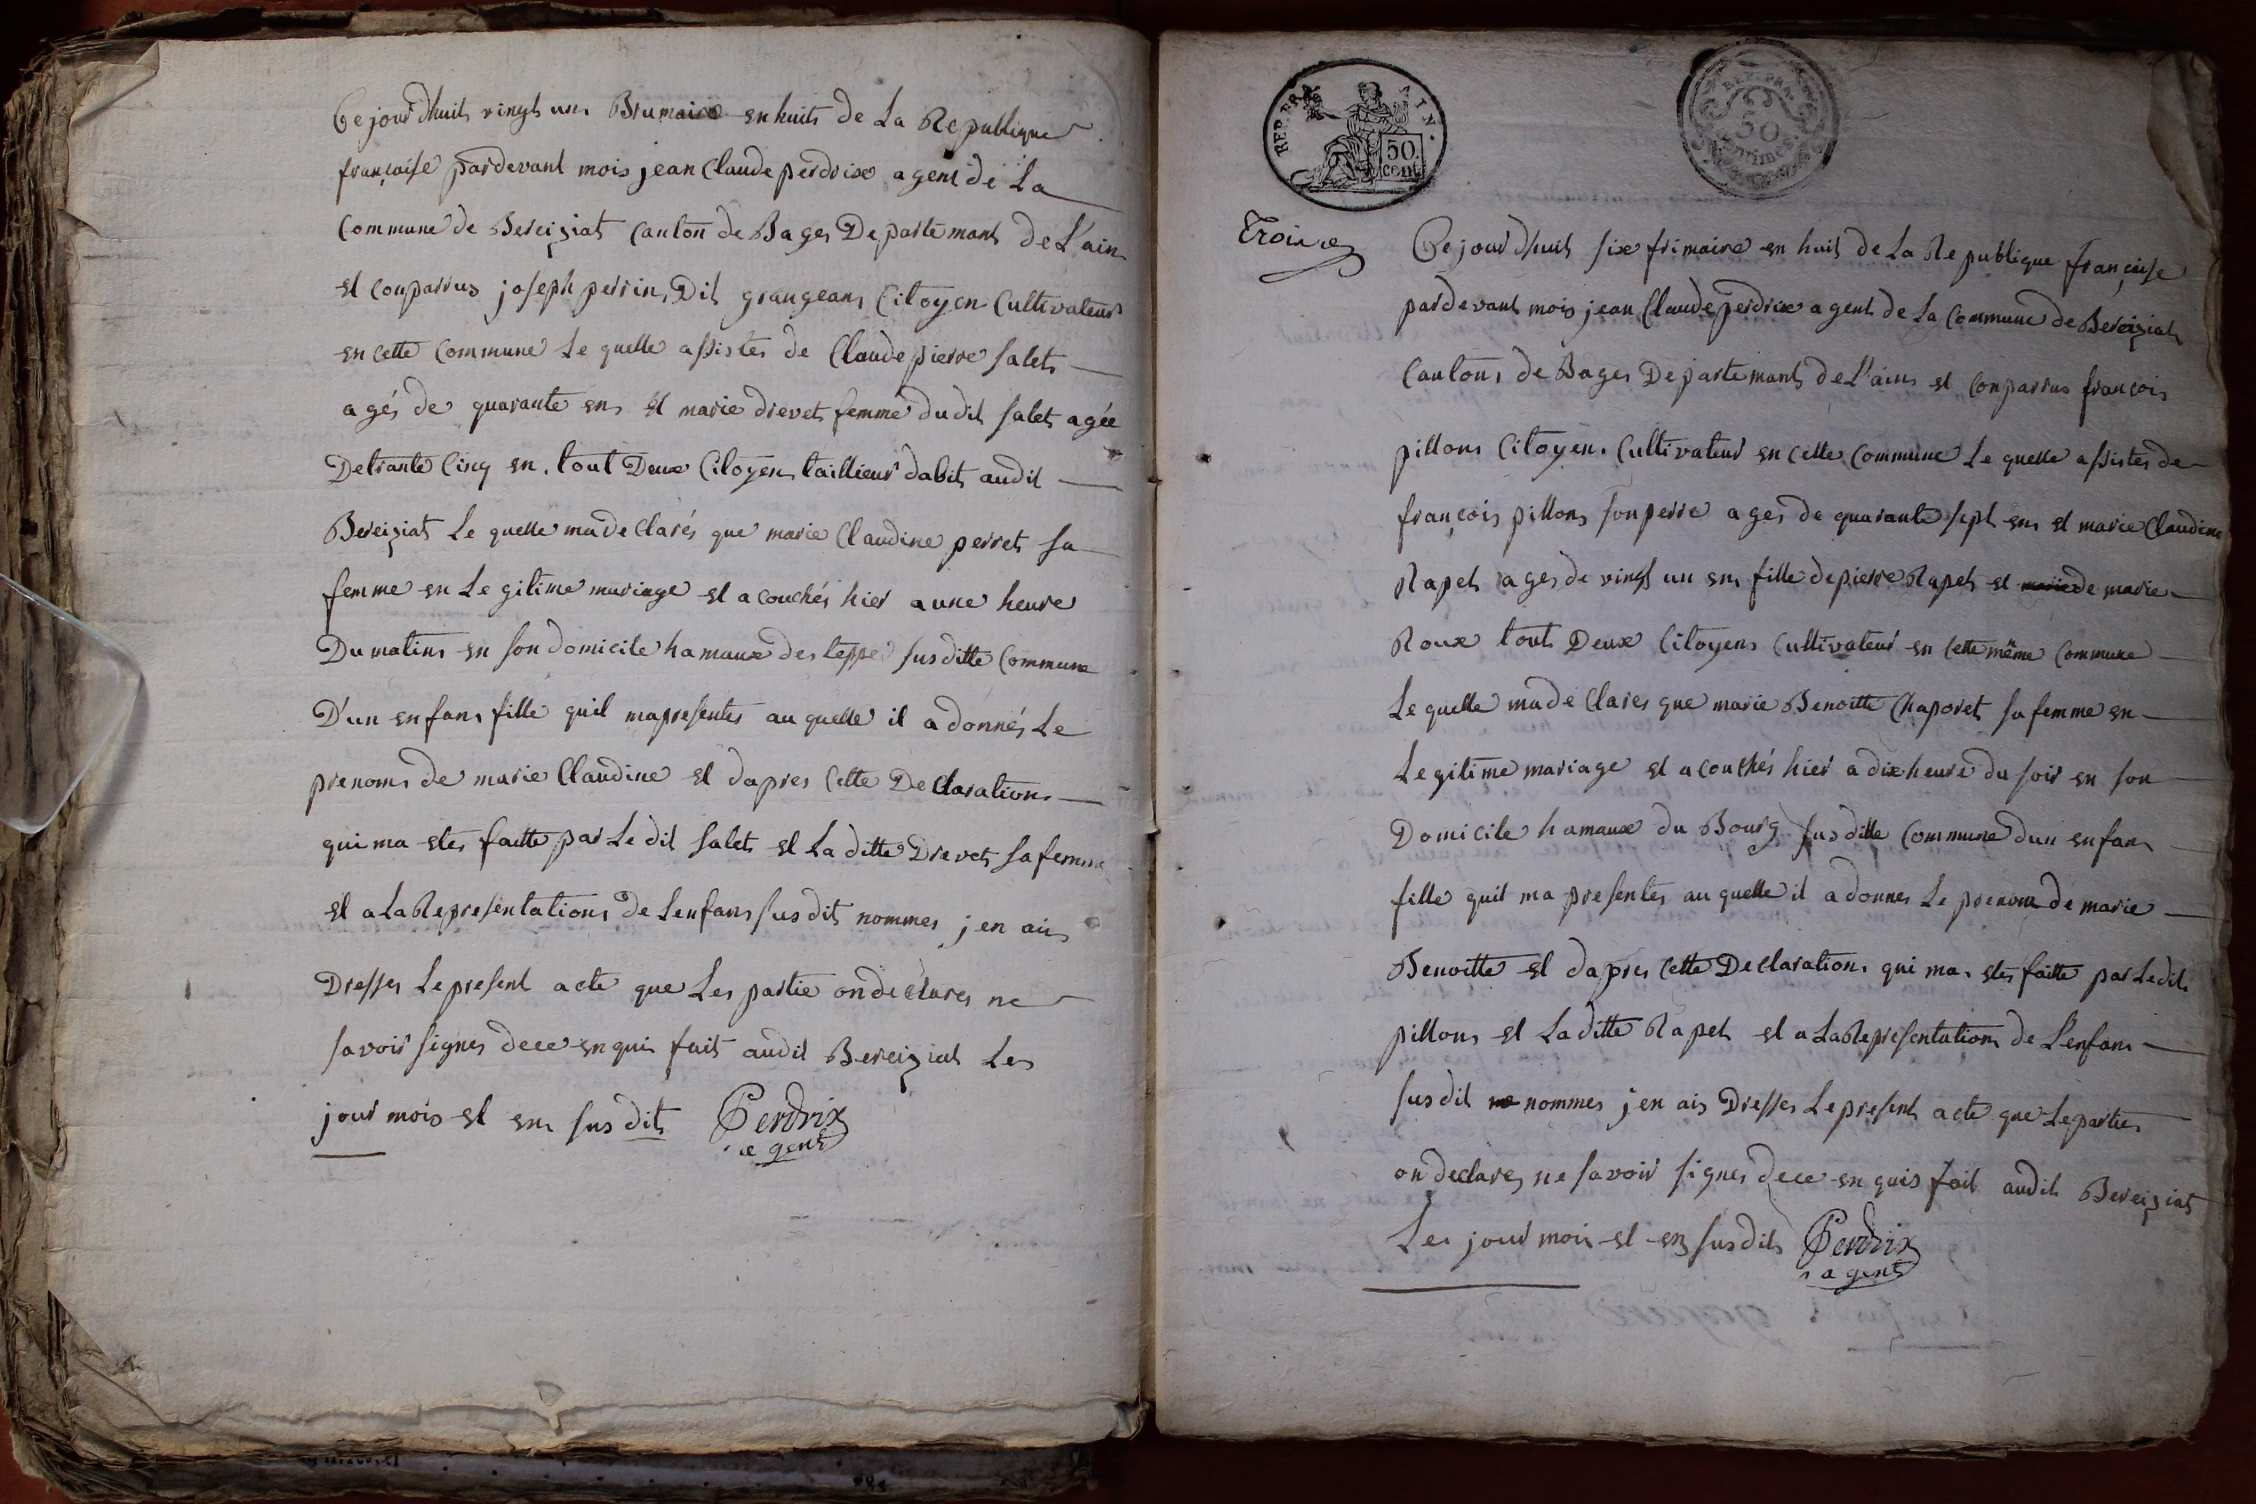 Cejourdhuit vingt un Brumaire en huits de La Republique
française pardevant mois jean Claude perdrixe agent de La
Commune de Bereiziat Canton de Bages Departemant de L'ain
et Comparrus joseph perrin Dit grangean Citoyen Cultivateur
en cette Commune Le quelle assistes de Claude pierre salets
agés de quarante en et marie drevet femme dudit salet agée
Detrante Cinq en tout Deux Citoyen taillieur dabit audit
Bereiziat Le quelle madeclarés que marie Claudine perret sa
femme en Le gitime mariage et acouchés hier a une heure
Dumatins en son domicile hamaux des teppe susditte Commune
D'un enfans fille quil mapresentes au quelle il adonnés Le
prenoms de marie Claudine et dapres Cette Declarations
qui ma etes faitte par Le dit salets et La ditte Drevets sa femme
et a La Representations de Lenfans susdit nommes jen ais
Dresses Le present acte que Les partie ondéclares ne
savoir signes dece enquis fait audit Bereiziat Les
jour mois et en susdits Perdrix
agent
REP. FRA. AIN.
50 cent
REP. FRA.
50 centimes
Troise
Cejourdhuit sixe frimaire en huit de La Republique française
pardevant mois jean Claude perdrixe agent de La Commune de Bereiziat
Cantons de Bages Departemants de L'ains et Comparrus françois
pillons Citoyen Cultivateur en Cette Commune Le quelle assistes de
françois pillons sonperre ages de quarante sept ens et marie Claudine
Rapet ages de vingt un en fille depierre Rapet et marie de marie
Roux tout Deux Citoyens Cultivateur en Cette même Commune
Le quelle madeclares que marie Benoitte Chaporet sa femme en
Legitime mariage et acouchés hier a dix heure du soir en son
Domicile hamaux du Bourg susditte Commune dun enfans
fille quil ma presentes au quelle il adonnes Le prenom de marie
Benoitte et dapres Cette Declarations qui ma etes faitte par Ledit
pillons et La ditte Rapet et a La Representations de L'enfans
susdit ne nommes jen ais Dresses Le present acte que Le parties
ondeclares ne savoir signes dece enquis fait audit Bereiziat
Les jour mois et en susdits Perdrix
agent